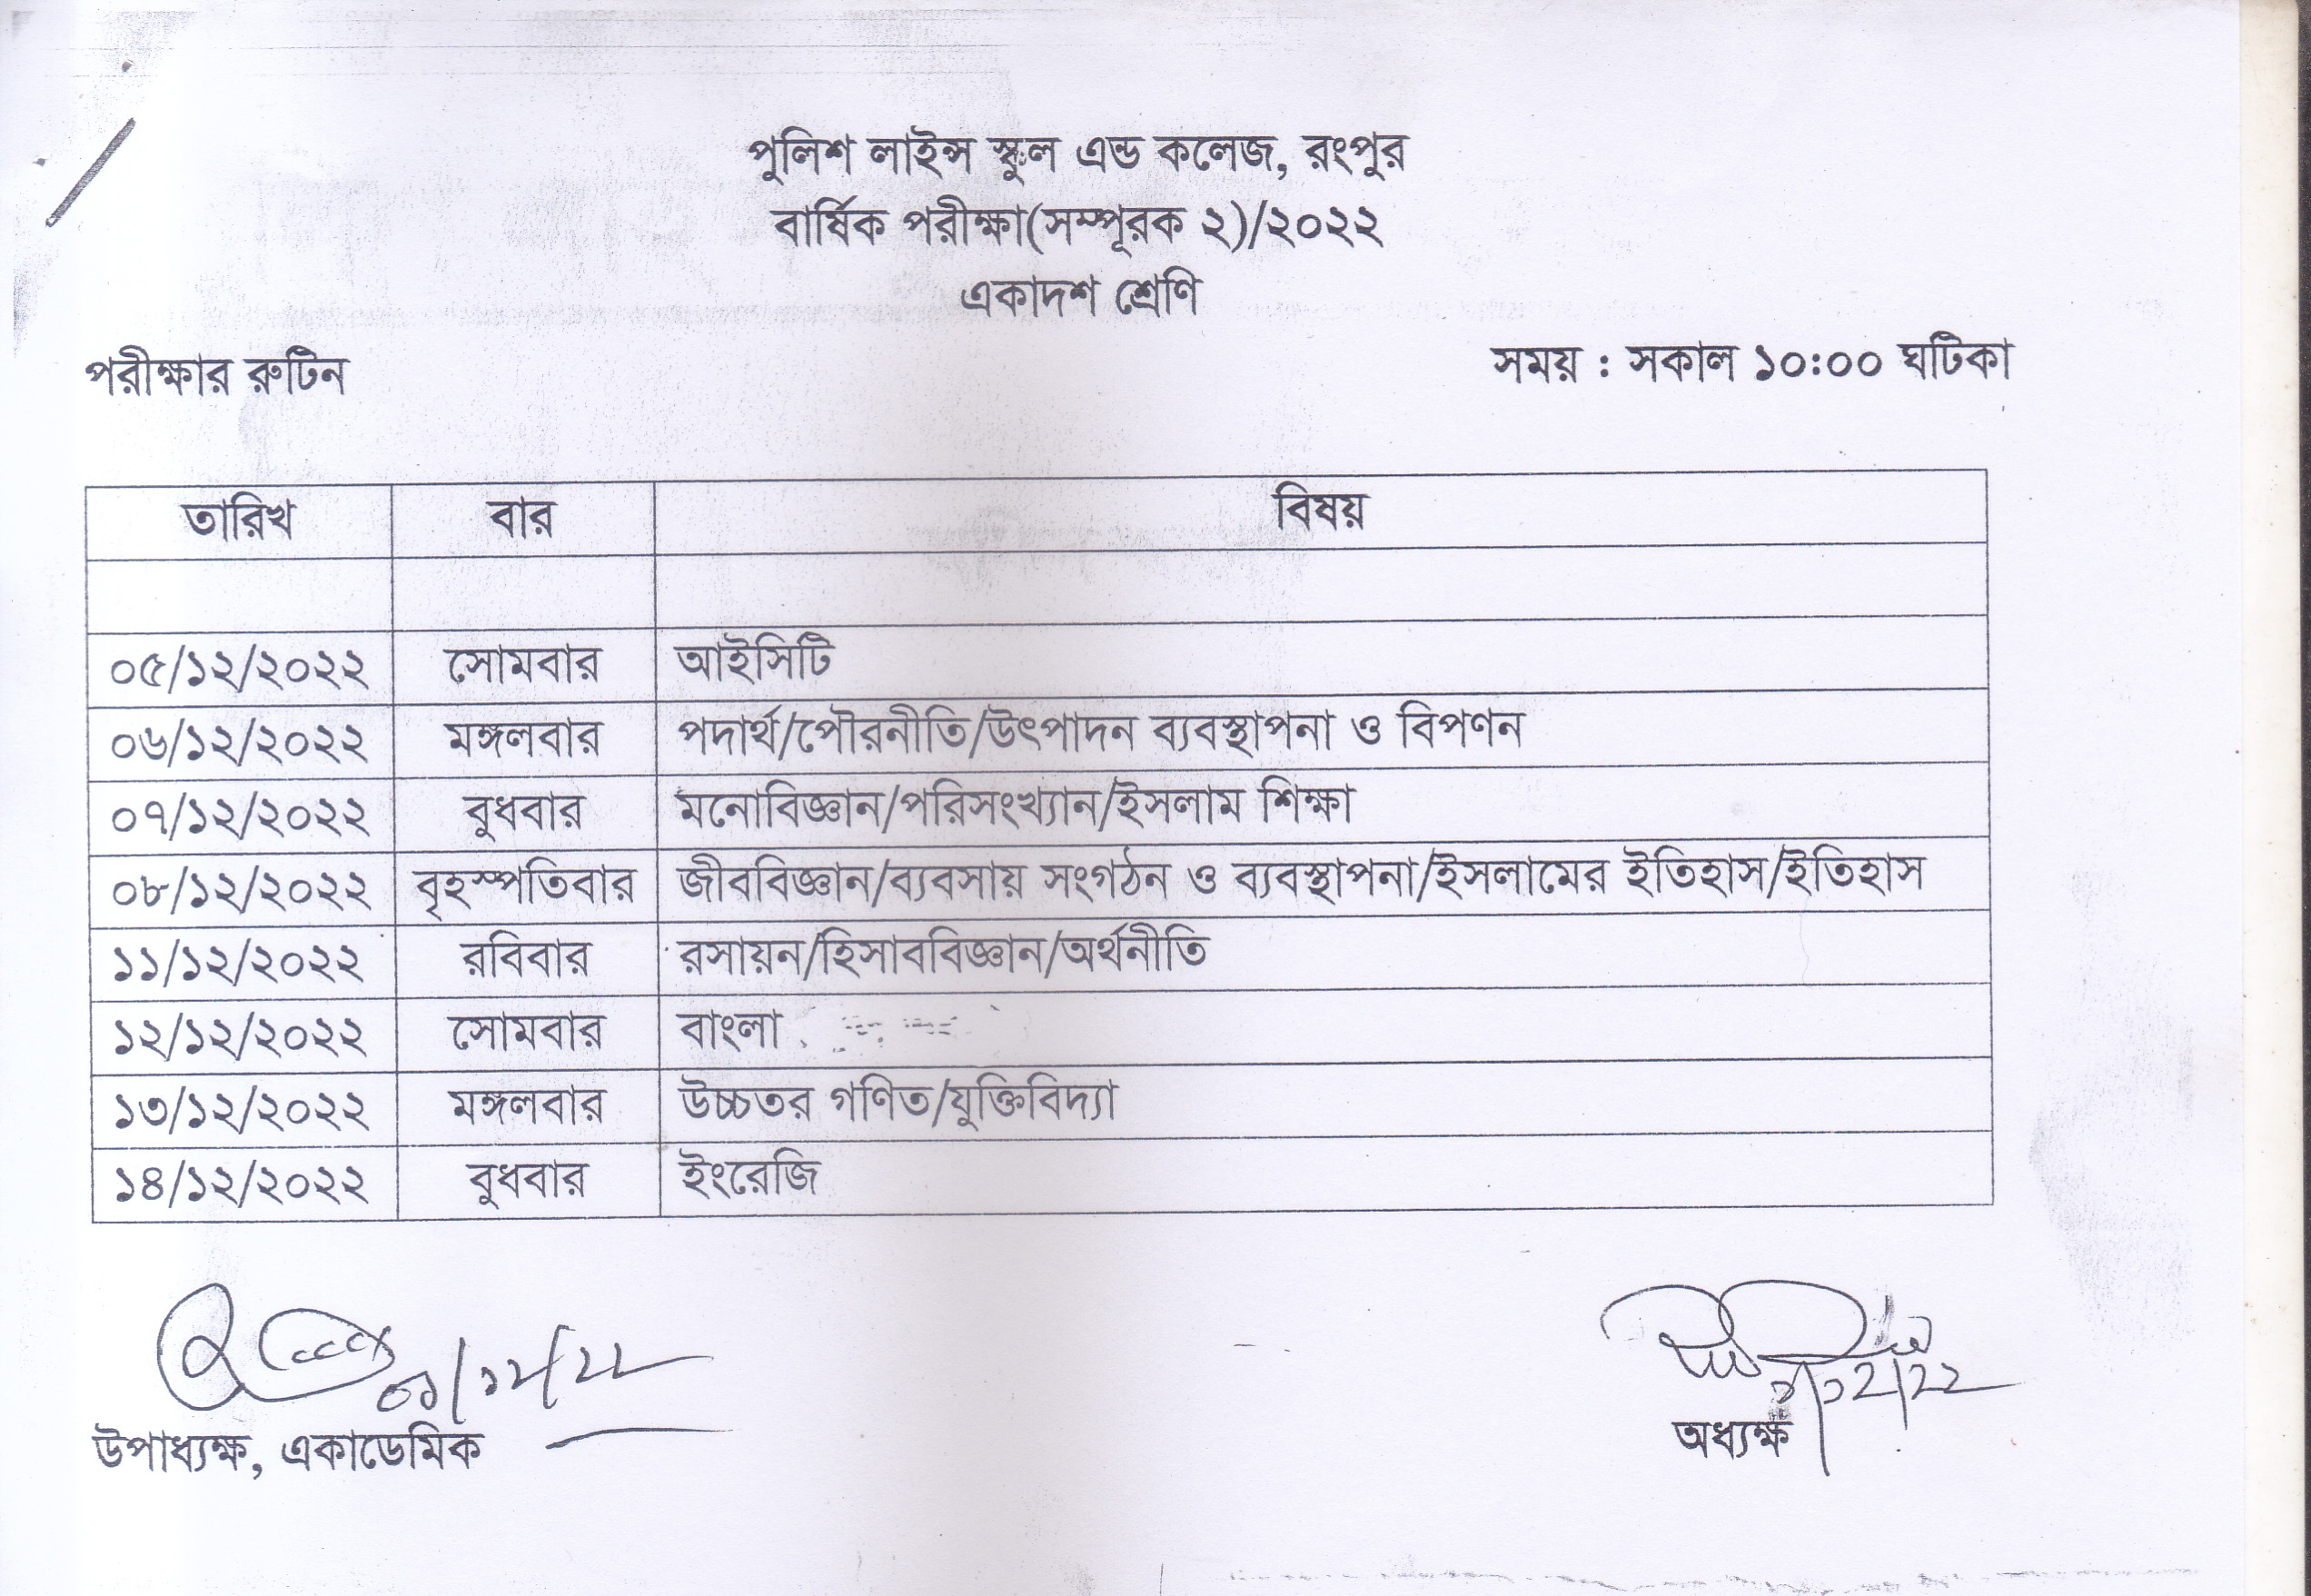 পুলিশ লাইন্স স্কুল এন্ড কলেজ, রংপুর
বার্ষিক পরীক্ষা(সম্পূরক ২)/২০২২
একাদশ শ্রেণি
পরীক্ষার রুটিন সময় : সকাল ১০:০০ ঘটিকা
তারিখ বার বিষয়
০৫/১২/২০২২ সোমবার আইসিটি
০৬/১২/২০২২ মঙ্গলবার পদার্থ/পৌরনীতি/উৎপাদন ব্যবস্থাপনা ও বিপণন
০৭/১২/২০২২ বুধবার মনোবিজ্ঞান/পরিসংখ্যান/ইসলাম শিক্ষা
০৮/১২/২০২২ বৃহস্পতিবার জীববিজ্ঞান/ব্যবসায় সংগঠন ও ব্যবস্থাপনা/ইসলামের ইতিহাস/ইতিহাস
১১/১২/২০২২ রবিবার রসায়ন/হিসাববিজ্ঞান/অর্থনীতি
১২/১২/২০২২ সোমবার বাংলা
১৩/১২/২০২২ মঙ্গলবার উচ্চতর গণিত/যুক্তিবিদ্যা
১৪/১২/২০২২ বুধবার ইংরেজি
০১/১২/২২
উপাধ্যক্ষ, একাডেমিক অধ্যক্ষ